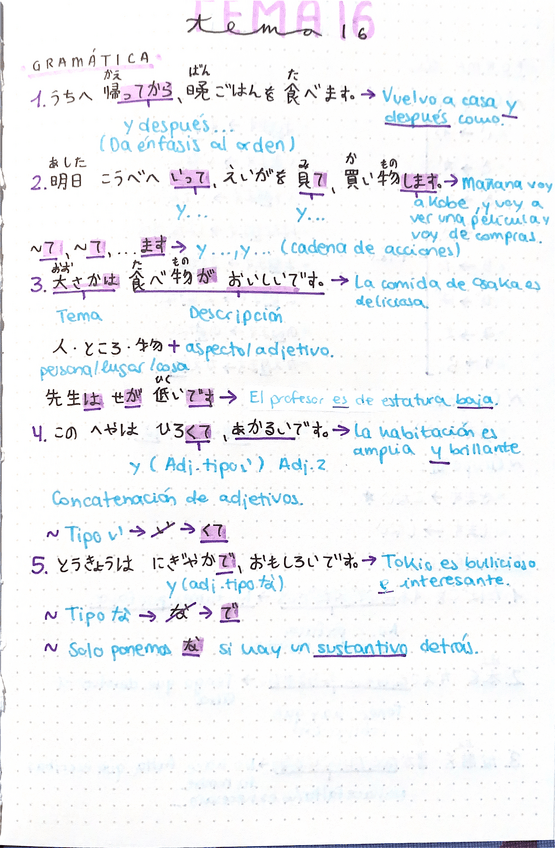 TEMA 16
tema 16
GRAMÁTICA
かえ ばん た
1. うちへ 帰ってから、晩ごはんを 食べます。→ Vuelvo a casa y
después como.
y después...
(Da énfasis al orden)
あした み か もの
2. 明日 こうべへ いって, えいがを 見て, 買い物します。→ Mañana voy
a Kobe, y voy a
y... y... ver una película y
voy de compras.
~て, ~て, ... ます → y...,y... (cadena de acciones)
おお た もの
3. 大さかは 食べ物が おいしいです。→ La comida de Osaka es
deliciosa.
Tema Descripción
人・ところ・物 + aspecto/adjetivo.
persona/lugar/cosa
ひく
先生は せが 低いです → El profesor es de estatura baja.
4. この へやは ひろくて, あかるいです。→ La habitación es
amplia y brillante
y (Adj. tipo い) Adj.2
Concatenación de adjetivos.
~ Tipo い → い → くて
5. とうきょうは にぎやかで, おもしろいです。→ Tokio es bullicioso
e interesante.
y (adj. tipo な)
~ Tipo な → な → で
~ Solo ponemos な si hay un sustantivo detrás.